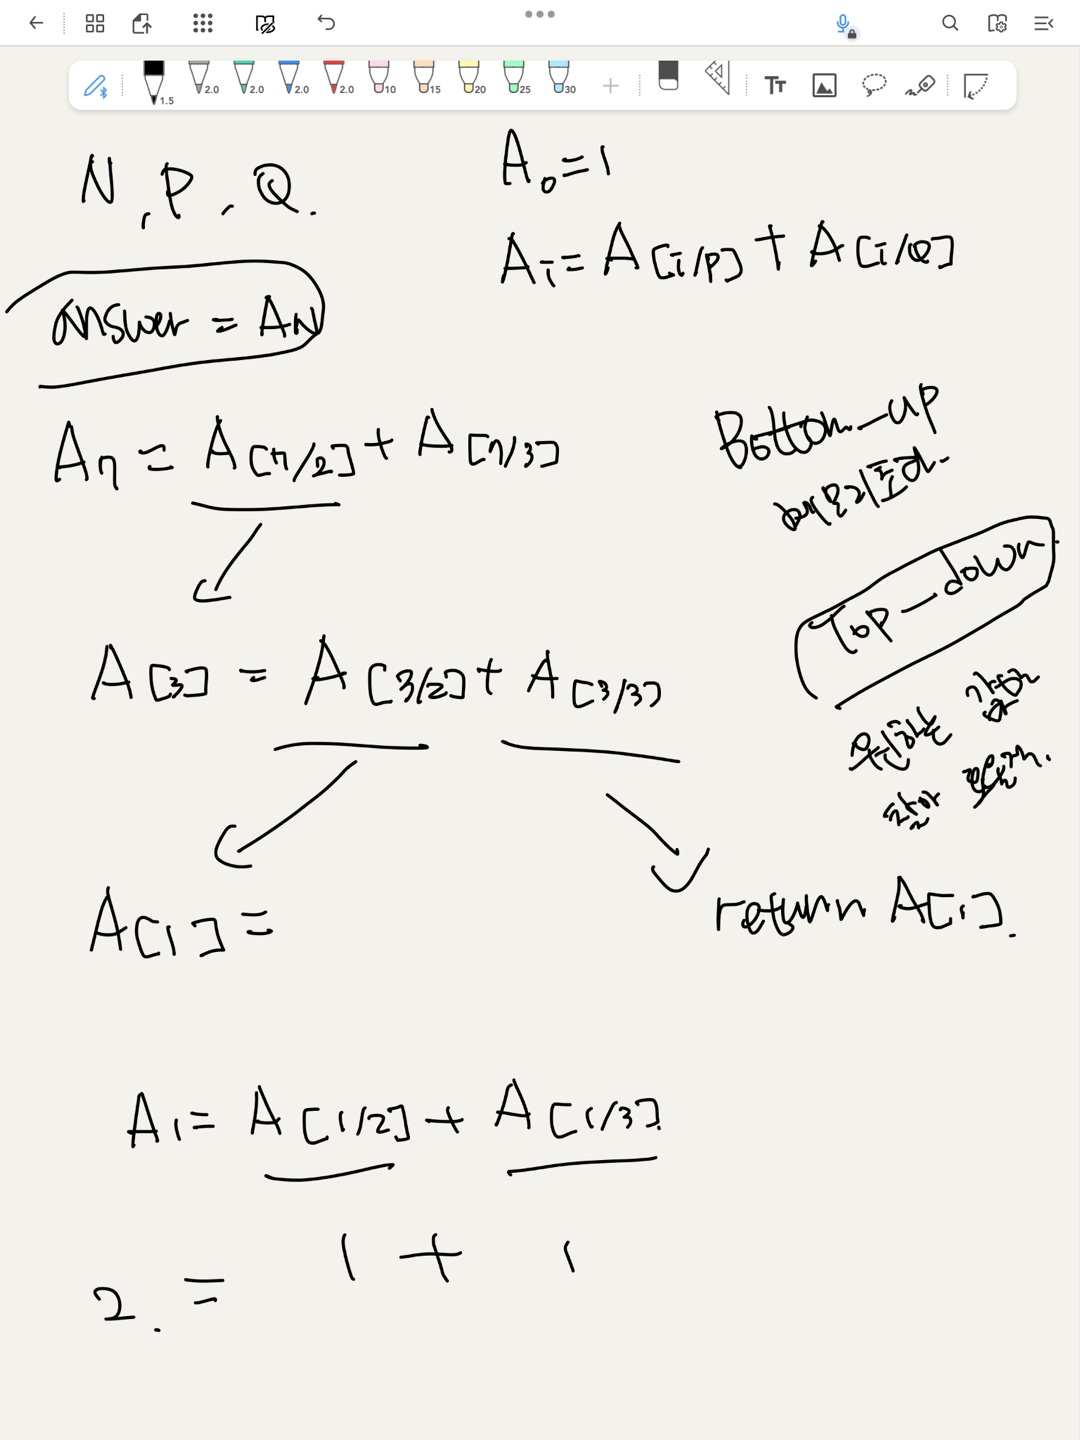 1.5 2.0 2.0 2.0 2.0 10 15 20 25 30 Tт
N, P, Q.
A₀=1
Aᵢ= A[i/P] + A[i/Q]
answer = AN
A₇ = A[7/2] + A[7/3]
Bottom-up
메모리초과.
Top-down
A[3] = A[3/2] + A[3/3]
원하는 값만
찾아
A[1] =
return A[1].
A₁ = A[1/2] + A[1/3]
2. = 1 + 1